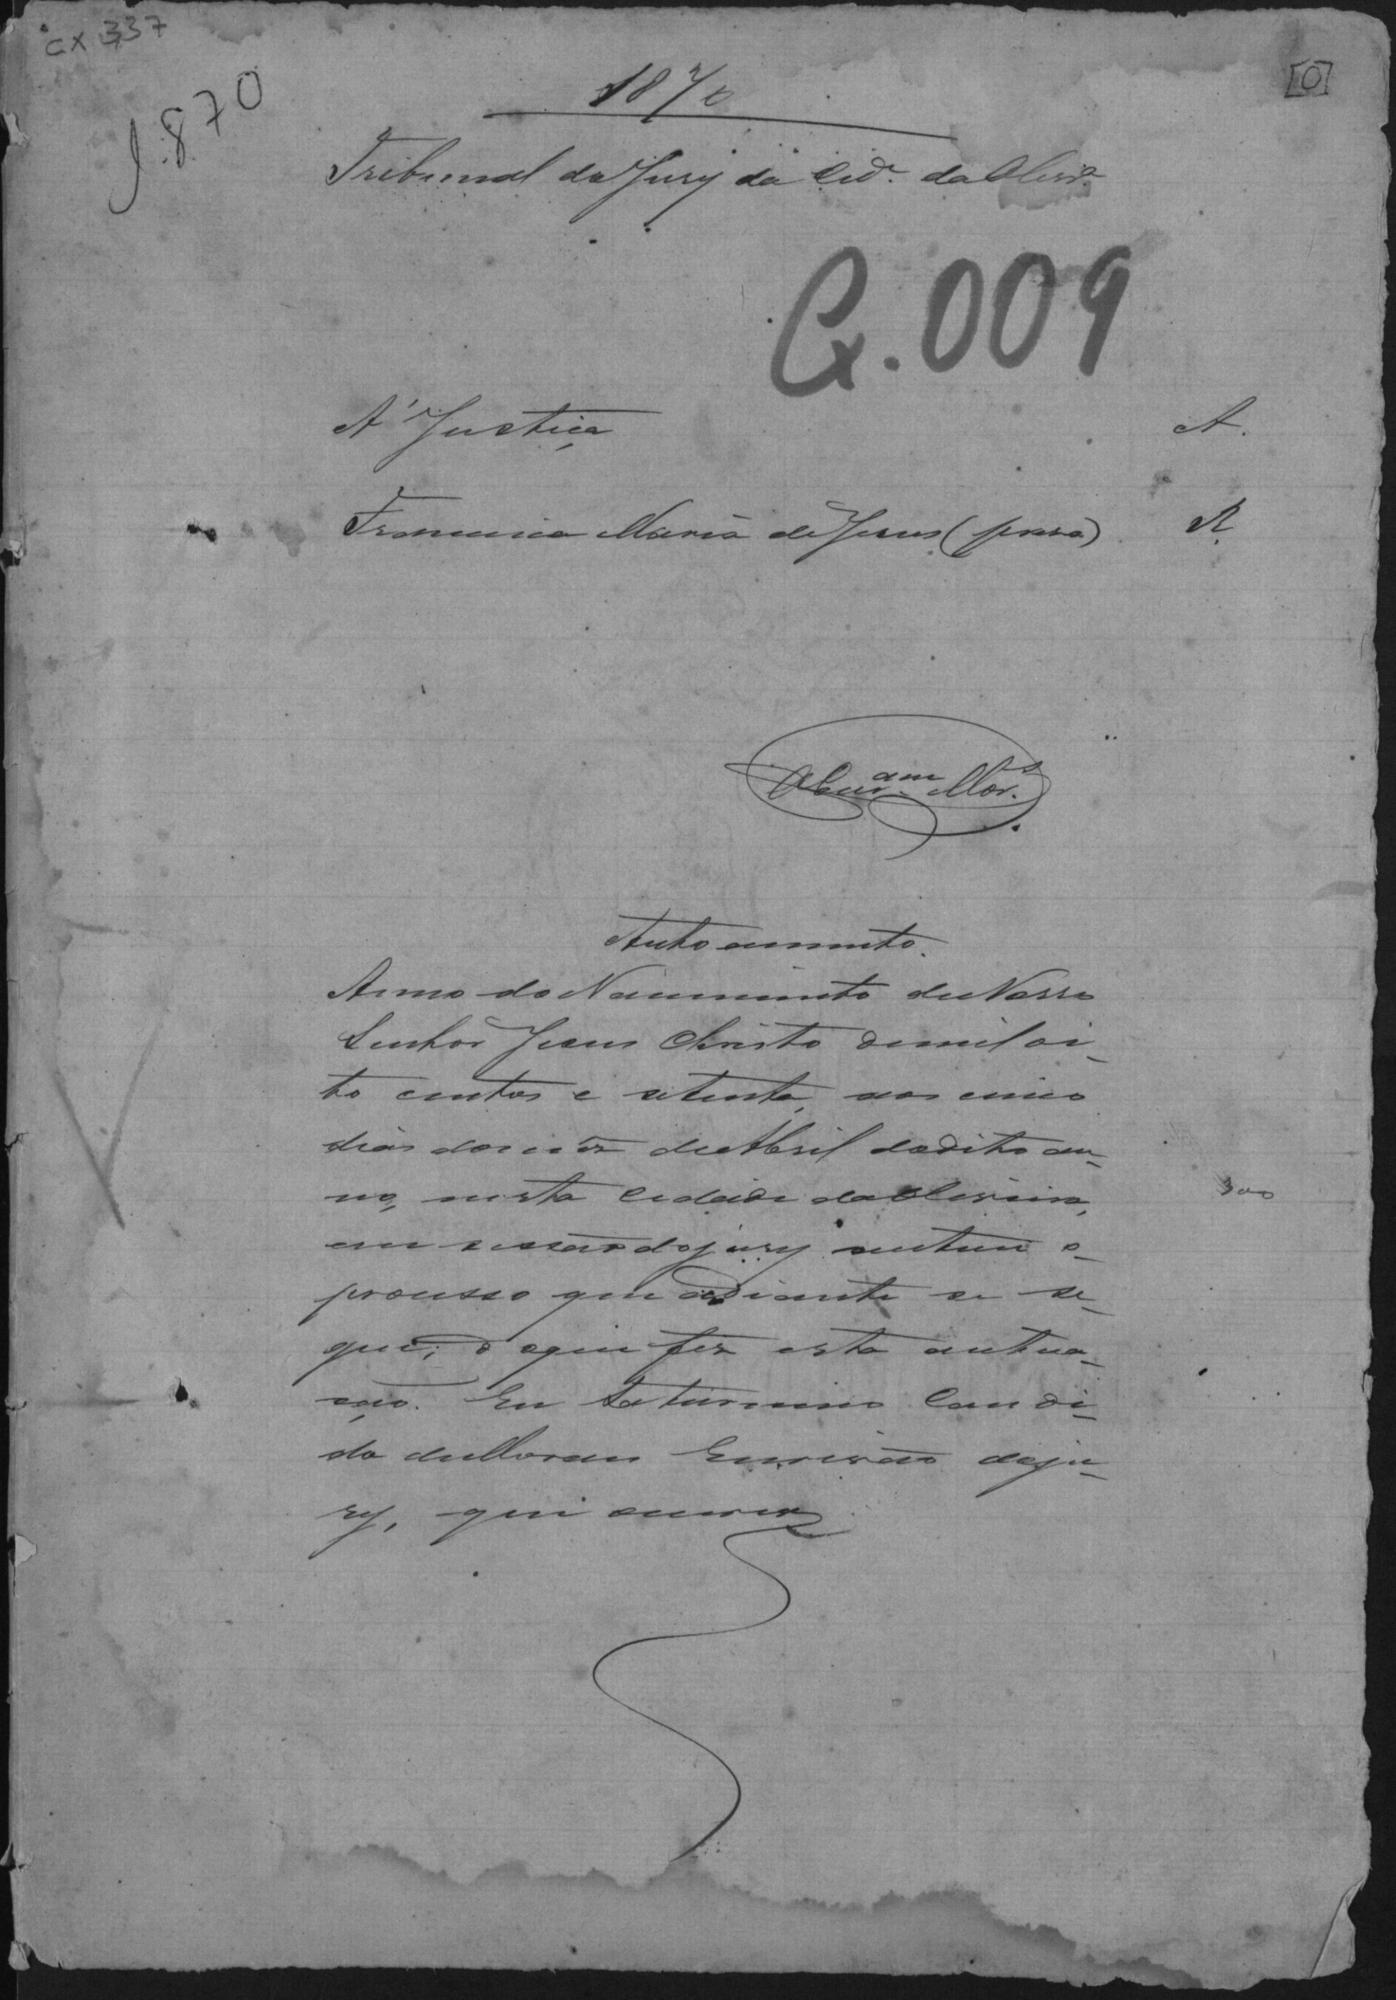 cx 337
[0]
1870
1870
Tribunal do Jury da Cid.e da Olivr.a
Cx. 009
A' Justiça A.
Francisca Maria de Jesus (presa) R.
Mor.s
Autoamento.
Anno do Nascimento de Nosso
Senhor Jesus Christo de mil oi-
to centos e setenta, aos cinco
dias do mez de Abril do dito an-
no, nesta Cidade da Oliveira,
em sessão do jury autuei o
processo que adiante se se-
gue; do que fiz esta autua-
ção. Eu Saturnino Candi-
do de Moraes Escrivão do ju-
ry, que escrevi
300